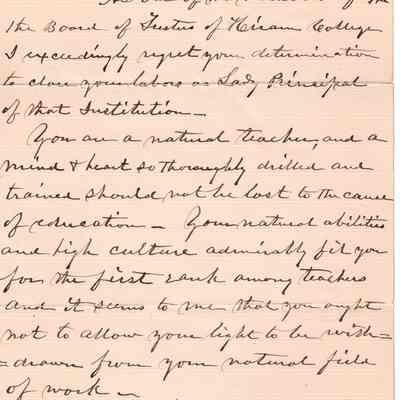 the Board of Trustes of Hiram College
I exceedingly regret your determination
to close your labors as Lady Principal
of that Institution —
You are a natural teacher, and a
mind & heart so thoroughly drilled and
trained should not be lost to the cause
of education — Your natural abilities
and high culture admirably fit you
for the first rank among teachers
and it seems to me that you ought
not to allow your light to be with=
=drawn from your natural field
of work —